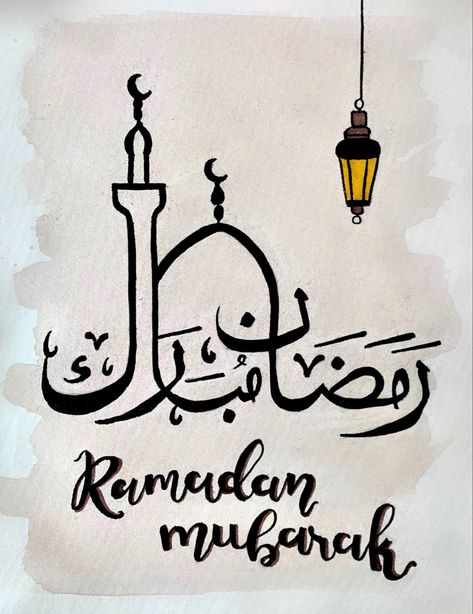 رمضان مبارك
Ramadan
mubarak